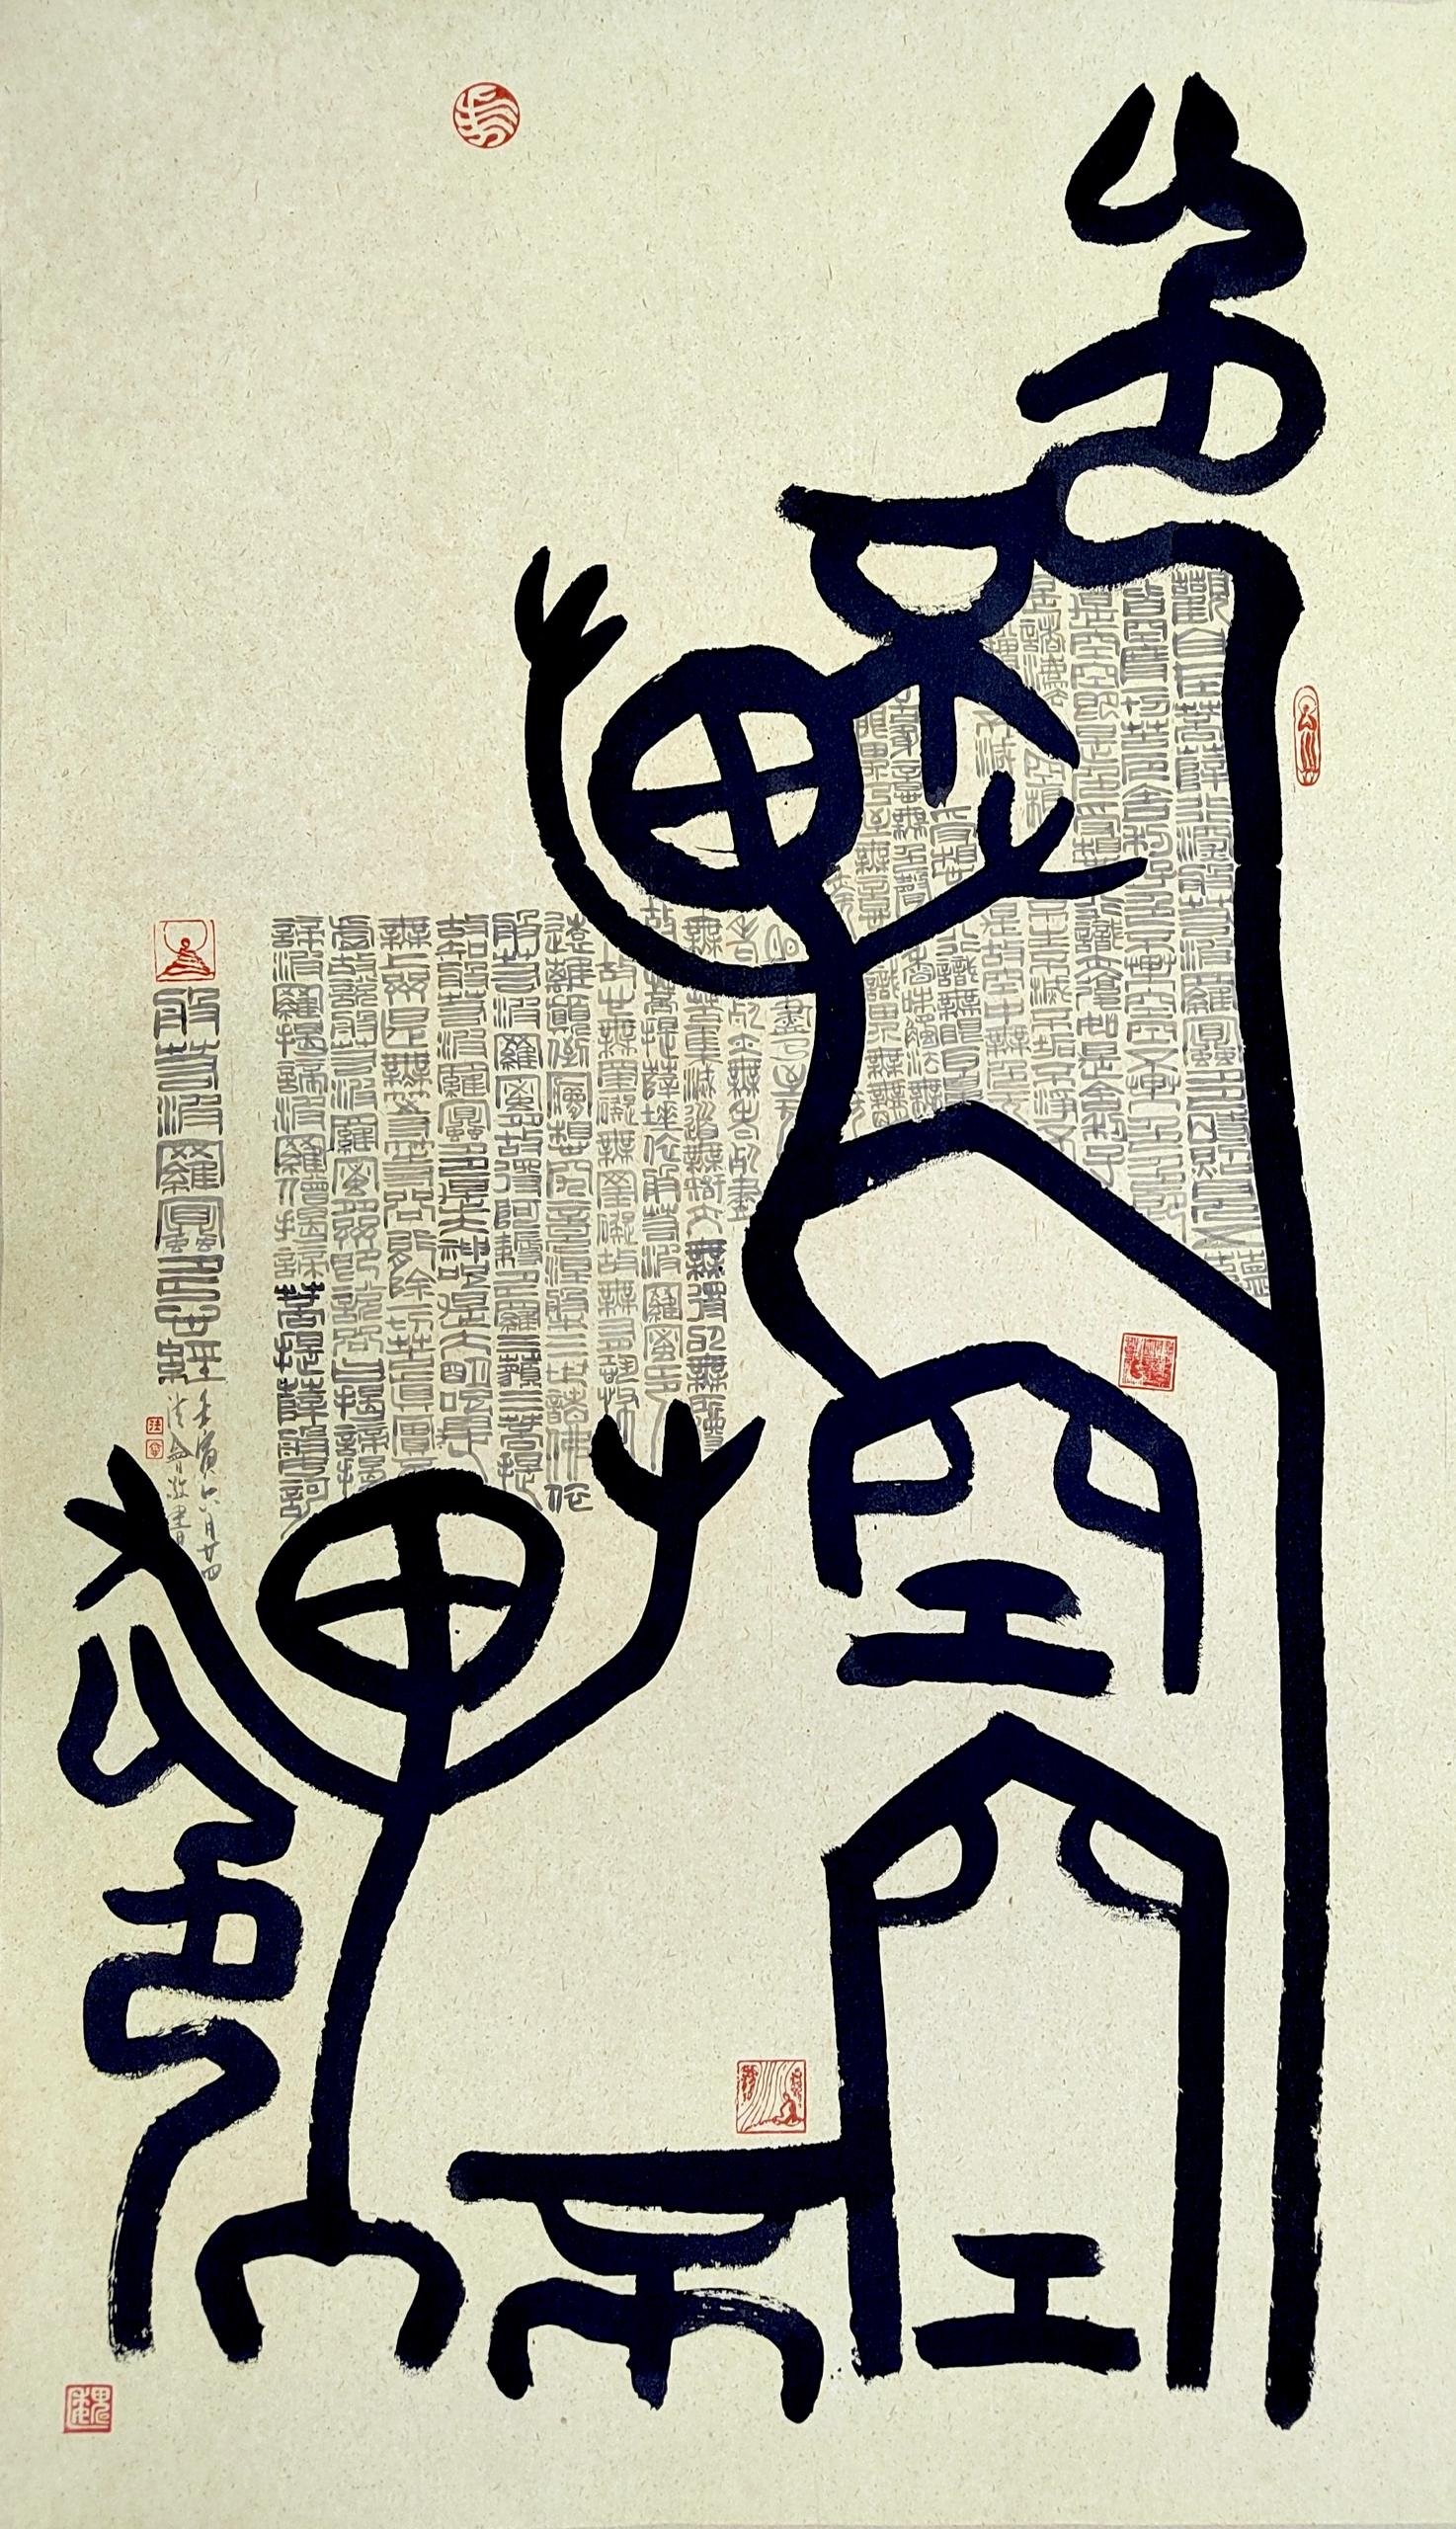 色不異空
空不異色
觀自在菩薩行深般若波羅蜜多時照見五蘊
皆空度一切苦厄舍利子色不異空空不異色色即
是空空即是色受想行識亦復如是舍利子
是諸法空相不生不滅不垢不淨不
增不減是故空中無色
受想行識無眼耳鼻
舌身意無色聲香味觸法無
眼界乃至無意識界無無明
亦無無明盡乃至無
老死亦無老死盡
無苦集滅道無智亦無得以無所得
故菩提薩埵依般若波羅蜜多
故心無罣礙無罣礙故無有恐怖
遠離顛倒夢想究竟涅槃三世諸佛依
般若波羅蜜多故得阿耨多羅三藐三菩提
故知般若波羅蜜多是大神咒是大明咒是
無上咒是無等等咒能除一切苦真實不
虛故說般若波羅蜜多咒即說咒曰揭諦揭
諦波羅揭諦波羅僧揭諦菩提薩婆訶
般若波羅蜜多心經
壬寅六月廿四
敬書
魏